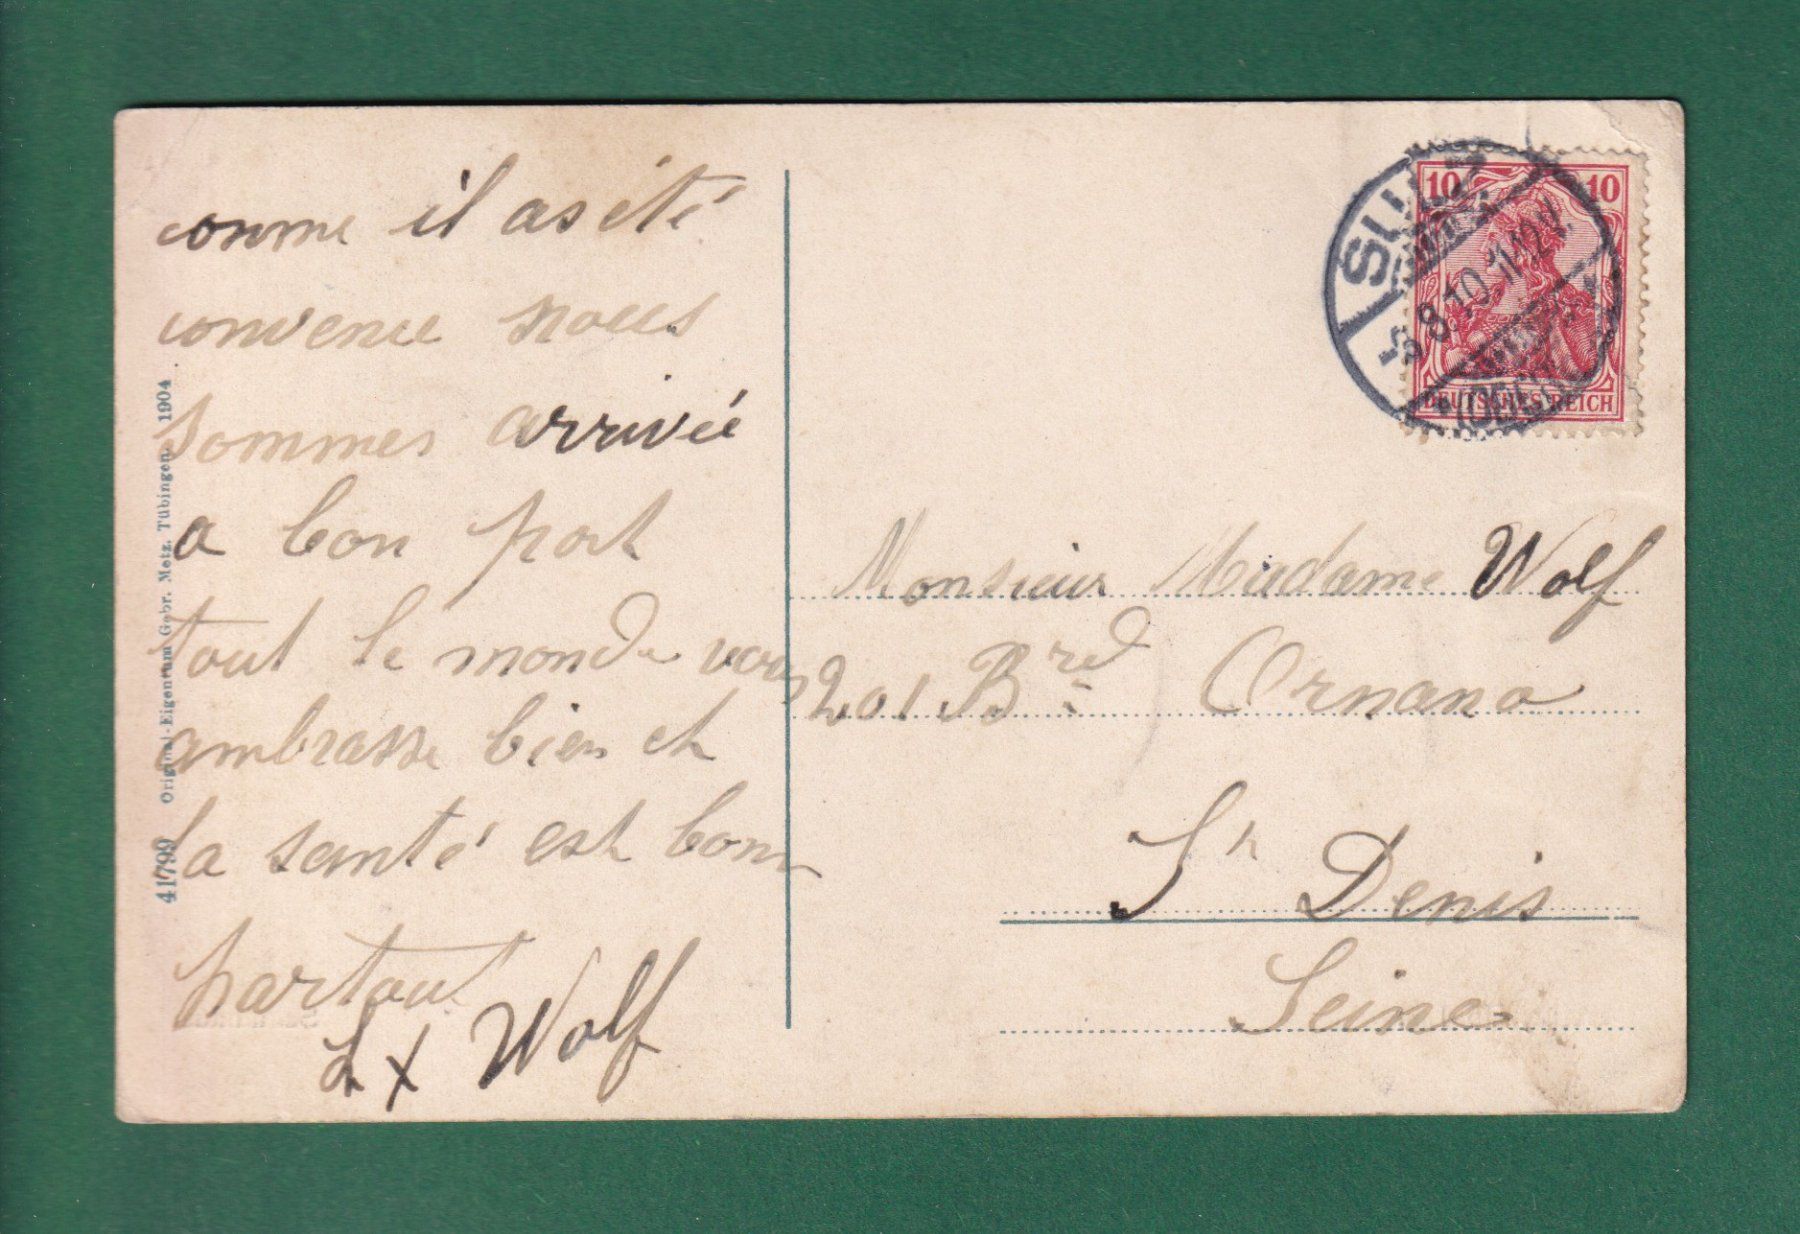 comme il as été
convenue nous
sommes arrivée
a bon port
tout le monde vous
ambrasse bien et
la santé est bonn
partout
Wolf
41799 Original-Eigentum Gebr. Metz, Tübingen. 1904
10 10
DEUTSCHES REICH
SULZ
8.10.
Monsieur Madame Wolf
201 Brd Ornano
St Denis
Seine